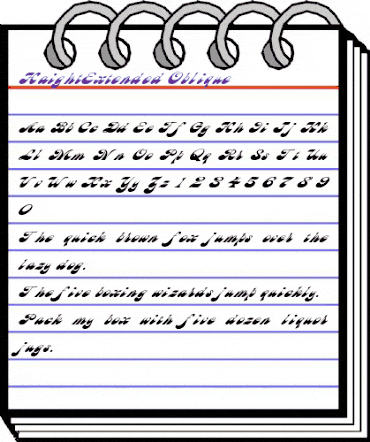 KnightExtended Oblique
Aa Bb Cc Dd Ee Ff Gg Hh Ii Jj Kk
Ll Mm Nn Oo Pp Qq Rr Ss Tt Uu
Vv Ww Xx Yy Zz 1 2 3 4 5 6 7 8 9
0
The quick brown fox jumps over the
lazy dog.
The five boxing wizards jump quickly.
Pack my box with five dozen liquor
jugs.